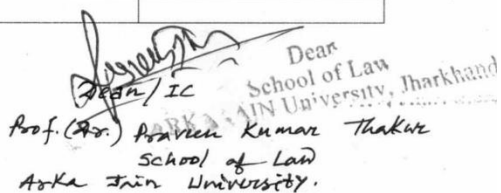 Dean
School of Law
ARKA JAIN University, Jharkhand
Dean/IC
Prof. (Dr.) Praveen Kumar Thakur
School of Law
Arka Jain University.